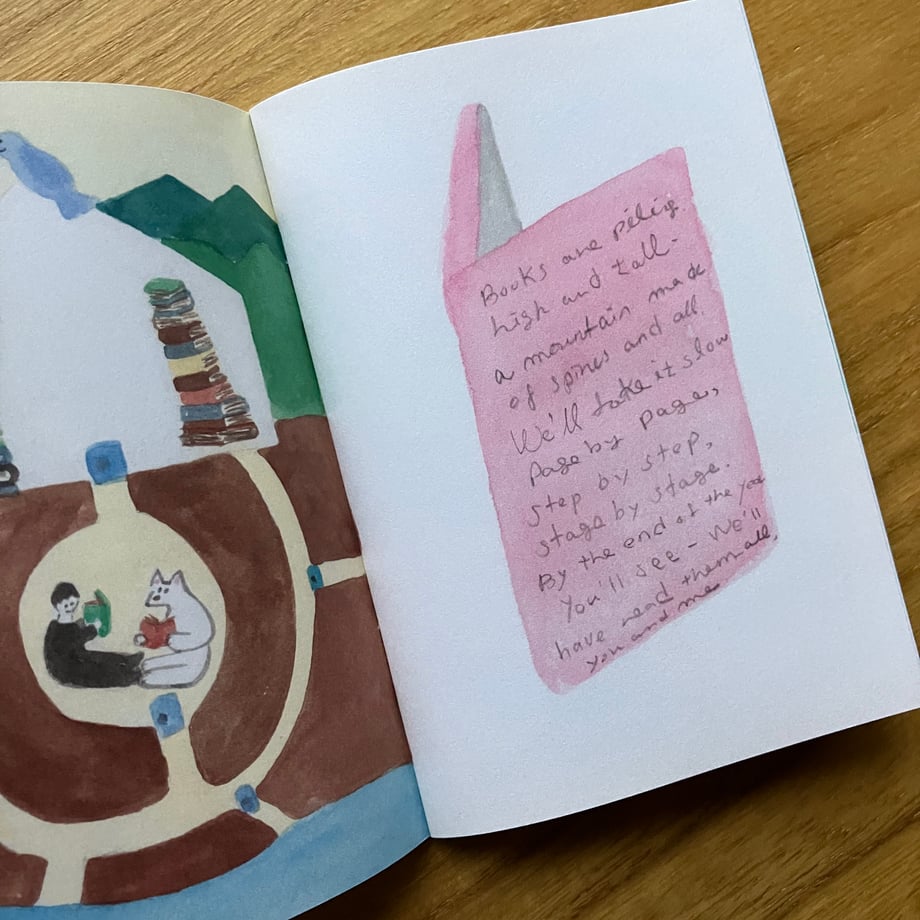 Books are piling
high and tall-
a mountain made
of spines and all.
We'll take it slow
page by page,
step by step,
stage by stage.
By the end of the year
You'll see - We'll
have read them all.
you and me